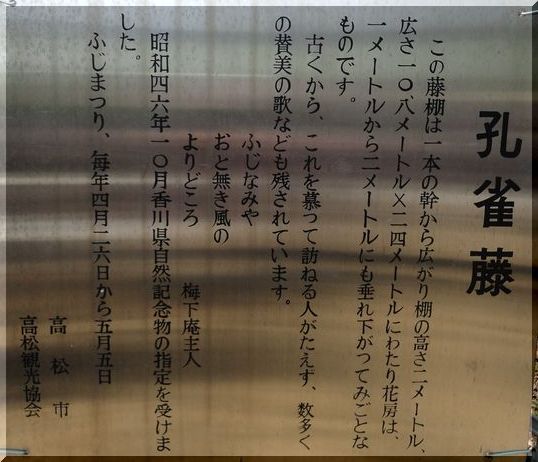 孔雀藤
この藤棚は一本の幹から広がり棚の高さ二メートル、
広さ一〇、八メートル×二四メートルにわたり花房は、
一メートルから二メートルにも垂れ下がってみごとな
ものです。
古くから、これを慕って訪ねる人がたえず、数多く
の賛美の歌なども残されています。
ふじなみや
おと無き風の
よりどころ
梅下庵主人
昭和四六年一〇月香川県自然記念物の指定を受けま
した。
ふじまつり、毎年四月二六日から五月五日
高松市
高松観光協会